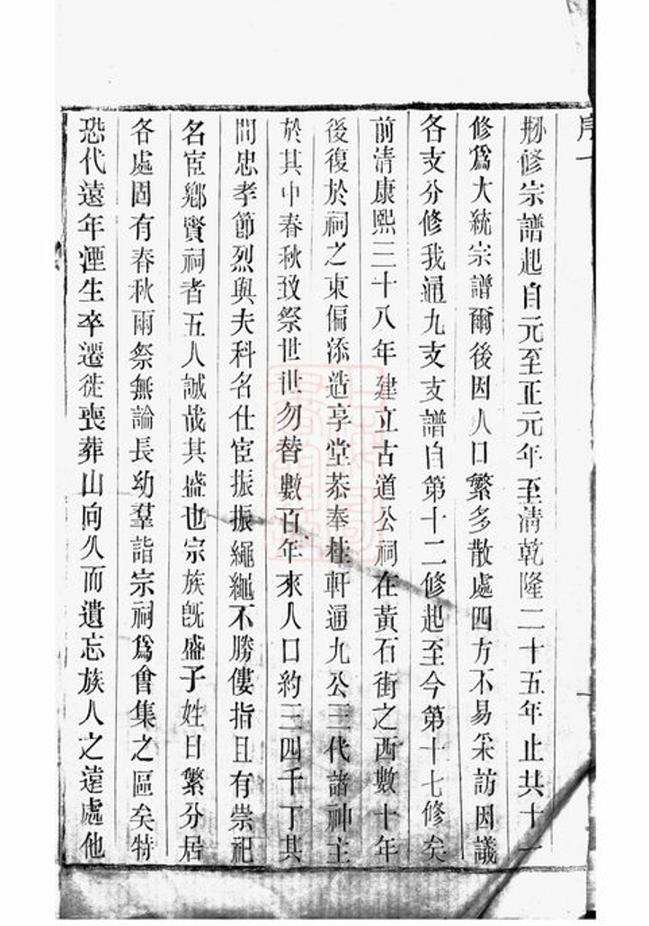 序
刱修宗譜起自元至正元年至清乾隆二十五年止共十一
修爲大統宗譜爾後因人口繁多散處四方不易采訪因議
各支分修我通九支支譜自第十二修起至今第十七修矣
前清康熙三十八年建立古道公祠在黃石街之西數十年
後復於祠之東偏添造享堂恭奉桂軒通九公三代諸神主
於其中春秋致祭世世勿替數百年來人口約三四千丁其
間忠孝節烈與夫科名仕宦振振繩繩不勝僂指且有崇祀
名宦鄉賢祠者五人誠哉其盛也宗族旣盛子姓日繁分居
各處固有春秋兩祭無論長幼羣詣宗祠爲會集之區矣特
恐代遠年湮生卒遷徙喪葬山向久而遺忘族人之遠處他